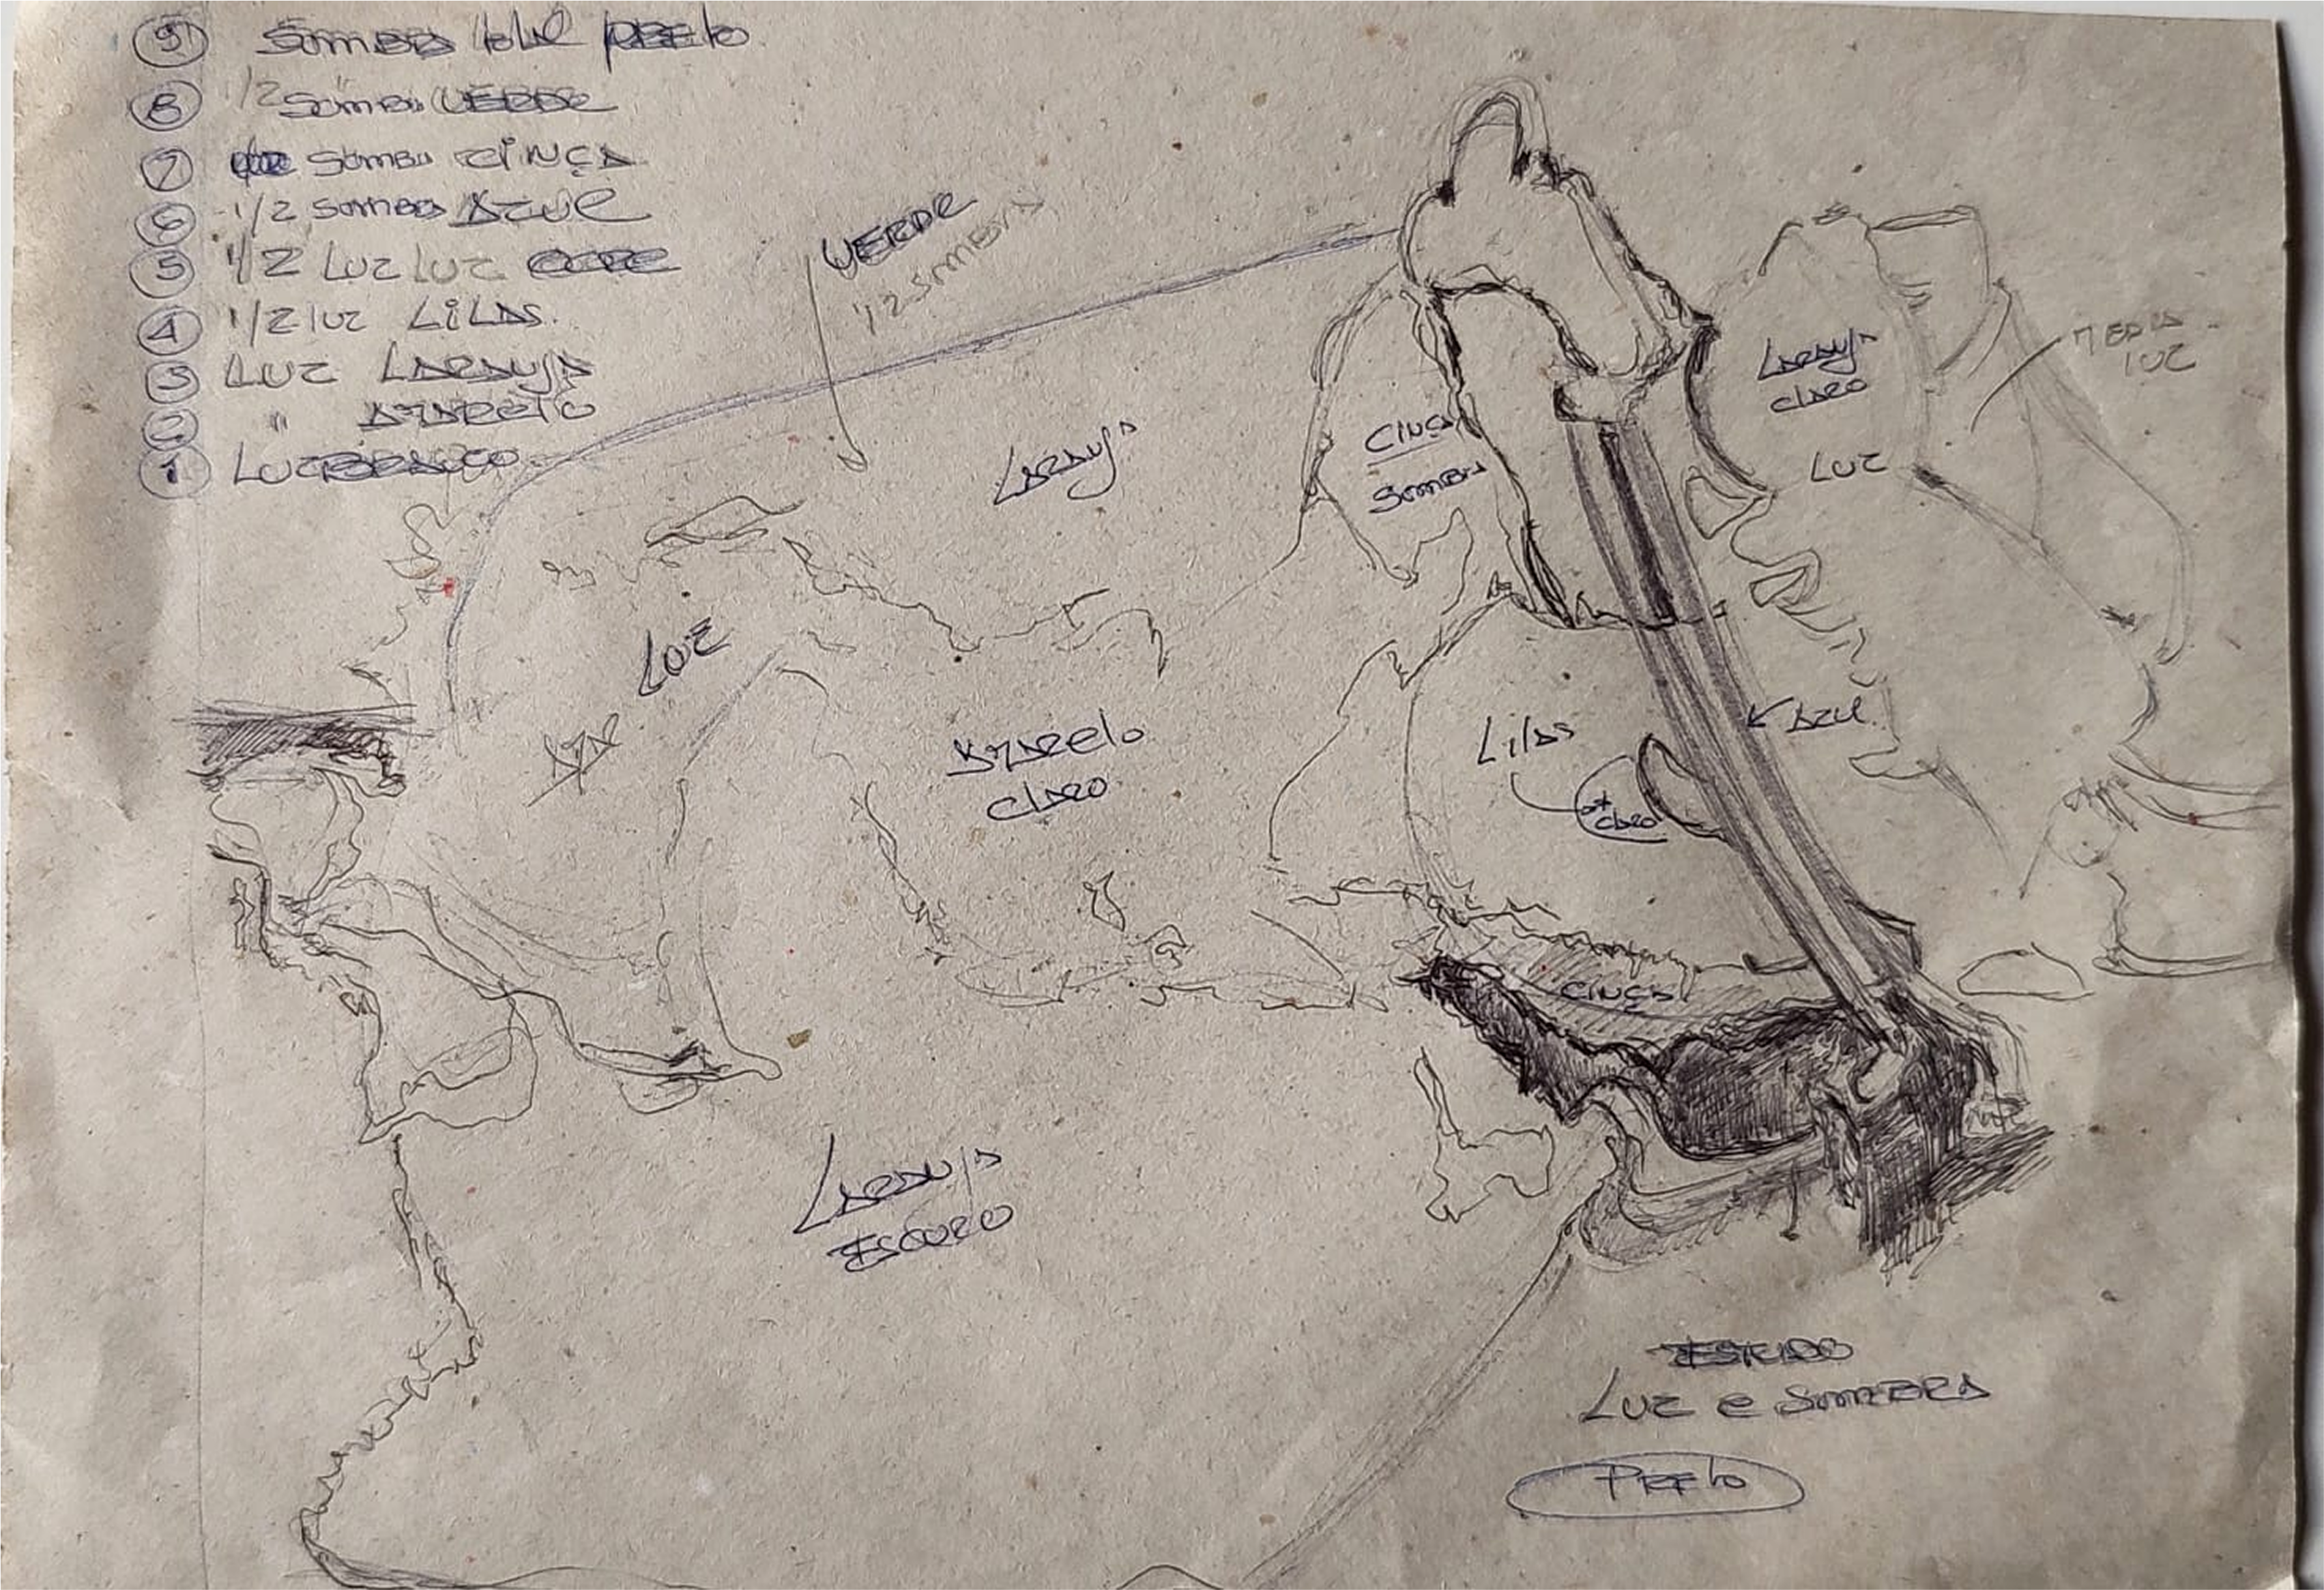 9 SOMBRA TOTAL PRETO
8 1/2 " SOMBRA VERDE
7 SOMBRA CINÇA
6 1/2 SOMBRA AZUL
5 1/2 LUZ LUZ OCRE
4 1/2 luz LiLAS.
3 LUZ LARANJA
2 " AMARElO
1 LUZ BRANCO
VERDE
1/2 SOMBRA
LARANJA
CINÇA
SOMBRA
LARANJA
CLARO
LUZ
MEDIA
LUZ
LUZ
AMA
AMARElo
CLARO
Lilas
CLARO
AZUL
CINÇA
LARANJA
ESCURO
ESTUDO
LUZ e SOMBRA
PREto